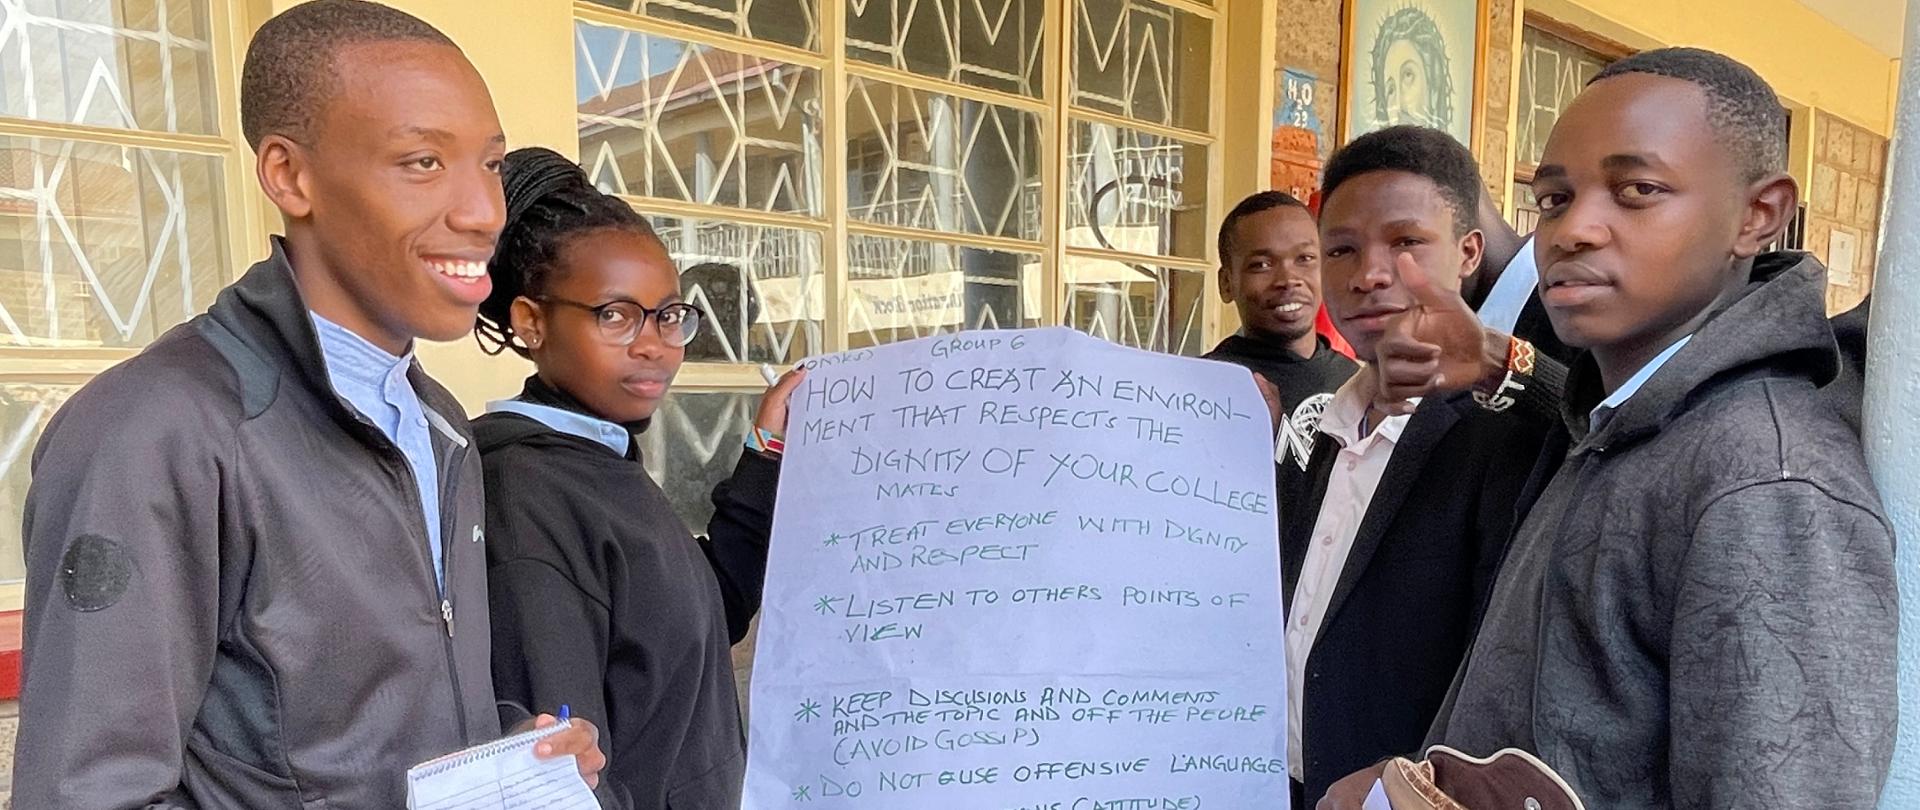 GROUP 6
HOW TO CREAT AN ENVIRON-
MENT THAT RESPECTS THE
DIGNITY OF YOUR COLLEGE
MATES
* TREAT EVERYONE WITH DIGNITY
AND RESPECT
* LISTEN TO OTHERS POINTS OF
VIEW
* KEEP DISCUSIONS AND COMMENTS
AND THE TOPIC AND OFF THE PEOPLE
(AVOID GOSSIP)
* DO NOT USE OFFENSIVE LANGUAGE.
(ATTITUDE)
H.O
23